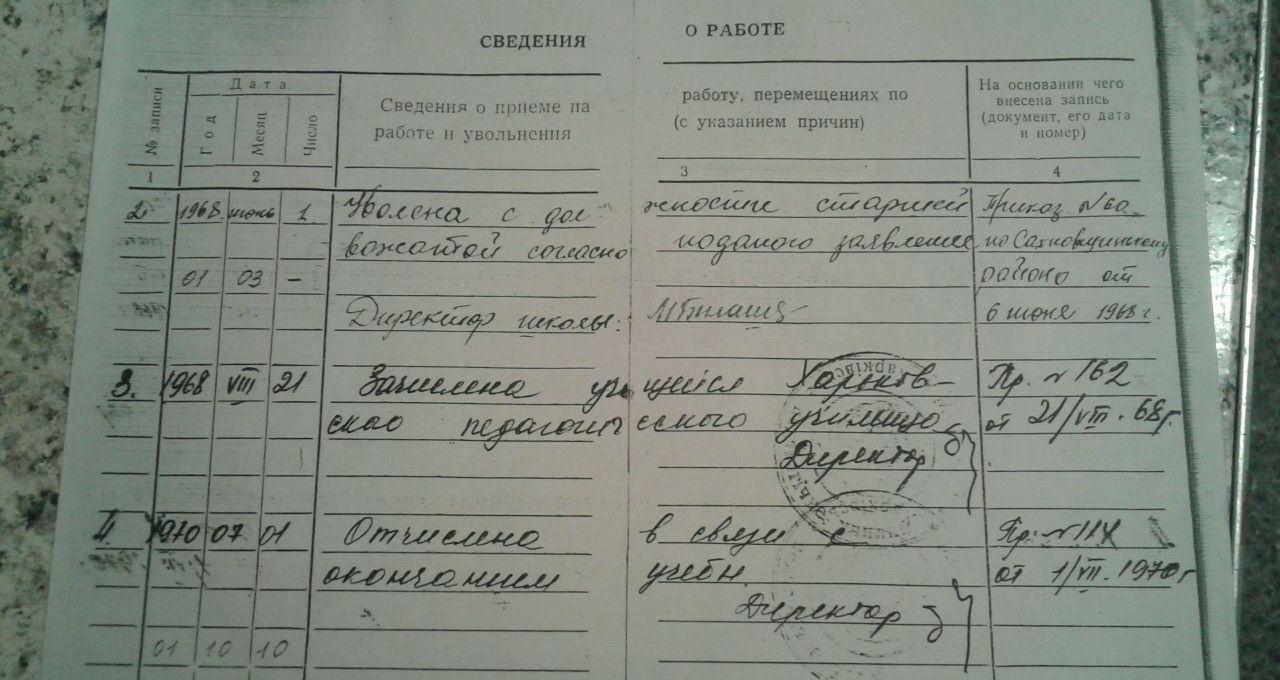 СВЕДЕНИЯ О РАБОТЕ
№ записи
Дата
Год
Месяц
Число
Сведения о приеме на работу, перемещениях по
работе и увольнения (с указанием причин)
На основании чего
внесена запись
(документ, его дата
и номер)
1 2 3 4
2 1968 июнь 1 Уволена с должности старшей Приказ №60
вожатой согласно поданого заявления по Сахновщинскому
01 03 – района от
Директор школы: 6 июня 1968 г.
3. 1968 VIII 21 Зачислена учащейся Харьков- Пр. № 162
ского педагогического училища от 21/VIII. 68г.
Директор
4. 1970 07 01 Отчислена в связи с Пр. №
окончанием учебн. от 1/VII. 1970г
Директор
01 10 10